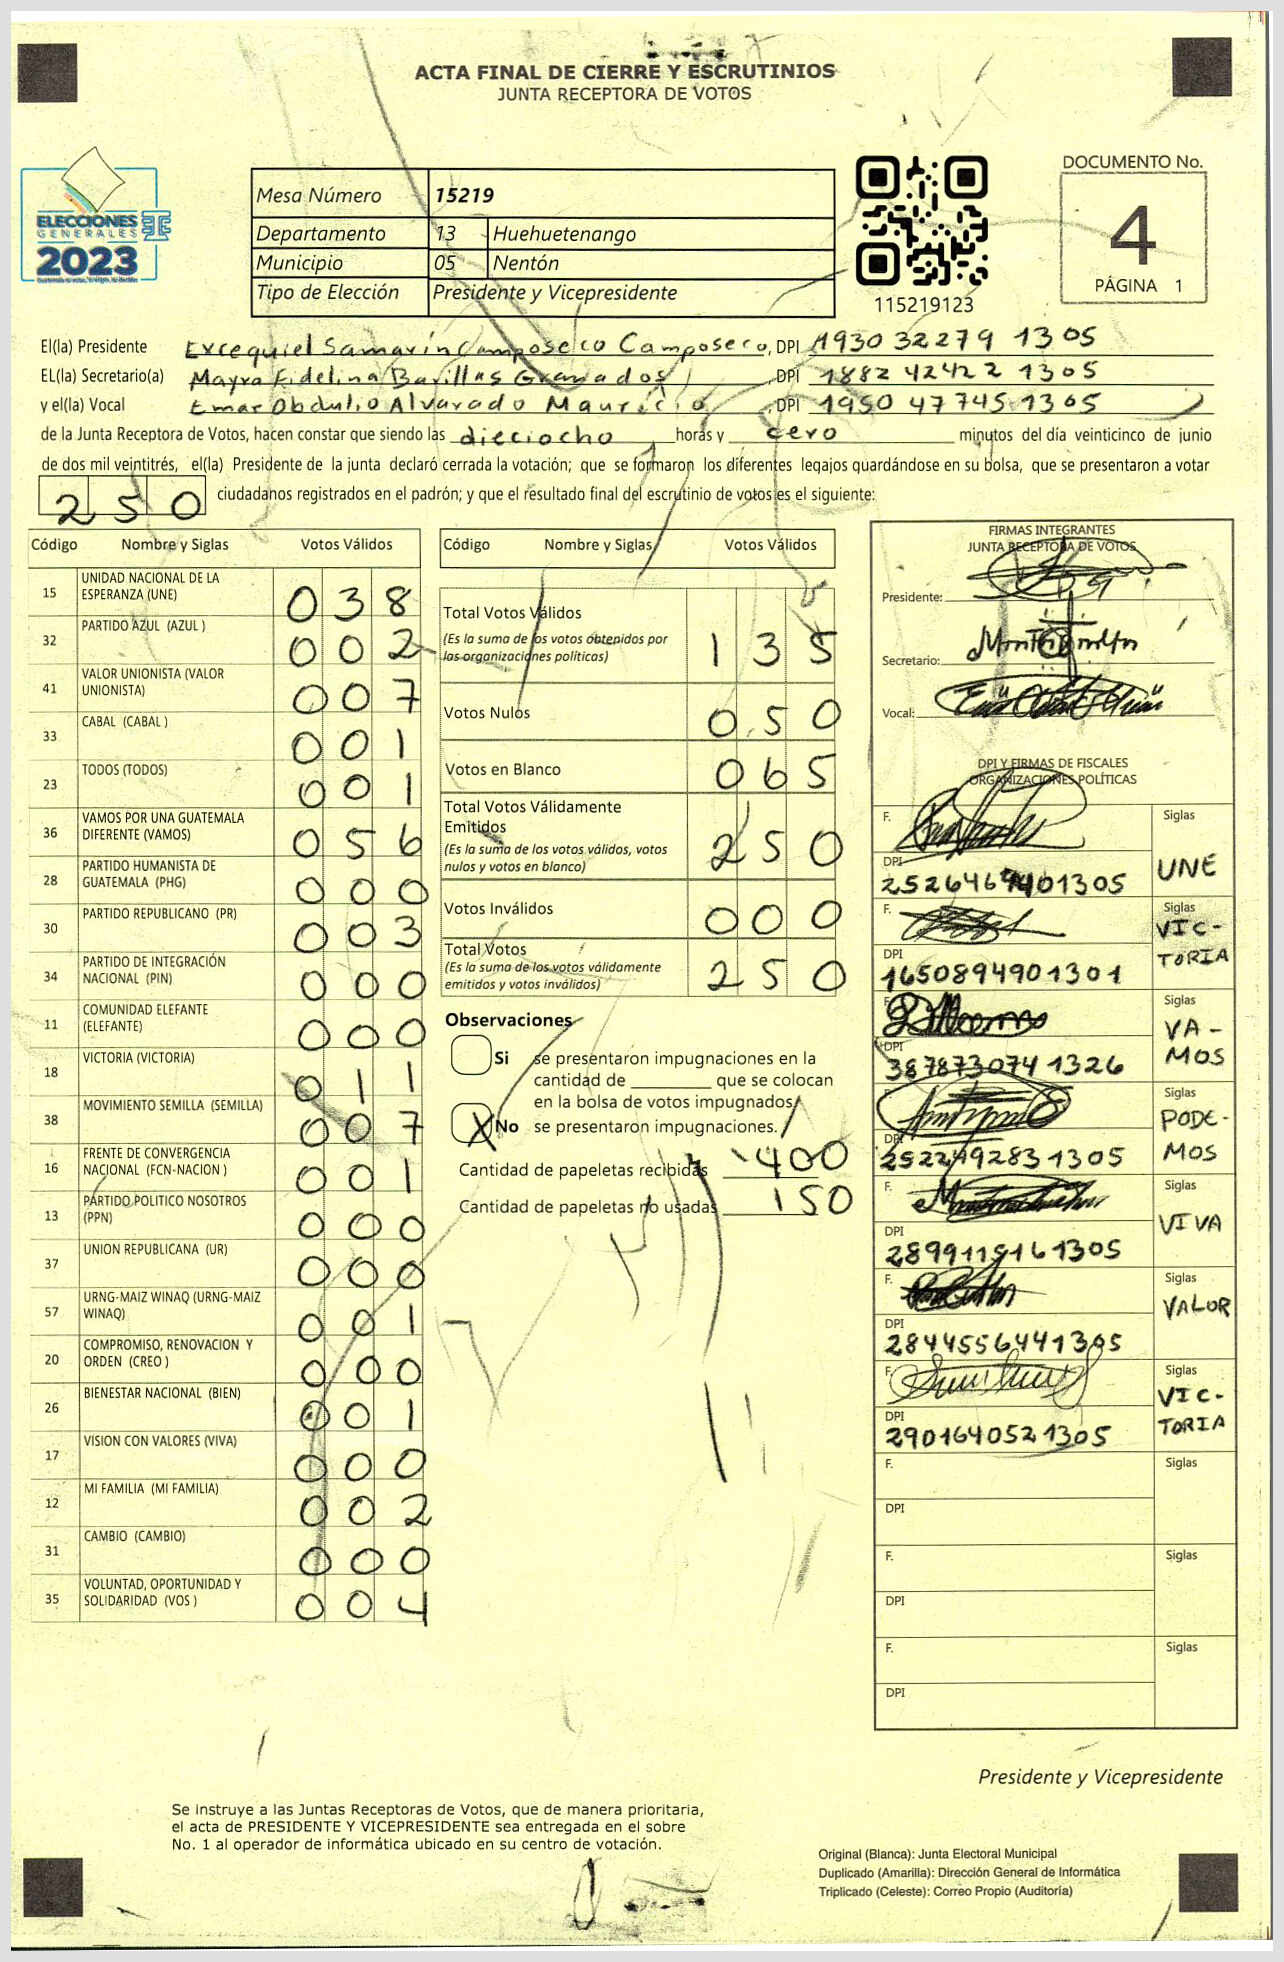 ACTA FINAL DE CIERRE Y ESCRUTINIOS
JUNTA RECEPTORA DE VOTOS
ELECCIONES
GENERALES
2023
Mesa Número 15219
Departamento 13 Huehuetenango
Municipio 05 Nentón
Tipo de Elección Presidente y Vicepresidente
115219123
DOCUMENTO No.
4
PÁGINA 1
El(la) Presidente Excequiel Samarín Camposeco Camposeco, DPI 1930 32279 1305
EL(la) Secretario(a) Mayra Fidelina Barillas Granados, DPI 1882 42422 1305
y el(la) Vocal Emar Obdulio Alvarado Mauricio, DPI 1950 47745 1305
de la Junta Receptora de Votos, hacen constar que siendo las dieciocho horas y cero minutos del día veinticinco de junio
de dos mil veintitrés, el(la) Presidente de la junta declaró cerrada la votación; que se formaron los diferentes legajos guardándose en su bolsa, que se presentaron a votar
250 ciudadanos registrados en el padrón; y que el resultado final del escrutinio de votos es el siguiente:
Código Nombre y Siglas Votos Válidos
15 UNIDAD NACIONAL DE LA ESPERANZA (UNE) 038
32 PARTIDO AZUL (AZUL ) 002
41 VALOR UNIONISTA (VALOR UNIONISTA) 007
33 CABAL (CABAL ) 001
23 TODOS (TODOS) 001
36 VAMOS POR UNA GUATEMALA DIFERENTE (VAMOS) 056
28 PARTIDO HUMANISTA DE GUATEMALA (PHG) 000
30 PARTIDO REPUBLICANO (PR) 003
34 PARTIDO DE INTEGRACIÓN NACIONAL (PIN) 000
11 COMUNIDAD ELEFANTE (ELEFANTE) 000
18 VICTORIA (VICTORIA) 011
38 MOVIMIENTO SEMILLA (SEMILLA) 007
16 FRENTE DE CONVERGENCIA NACIONAL (FCN-NACION ) 001
13 PARTIDO POLITICO NOSOTROS (PPN) 000
37 UNION REPUBLICANA (UR) 000
57 URNG-MAIZ WINAQ (URNG-MAIZ WINAQ) 001
20 COMPROMISO, RENOVACION Y ORDEN (CREO ) 000
26 BIENESTAR NACIONAL (BIEN) 001
17 VISION CON VALORES (VIVA) 000
12 MI FAMILIA (MI FAMILIA) 002
31 CAMBIO (CAMBIO) 000
35 VOLUNTAD, OPORTUNIDAD Y SOLIDARIDAD (VOS ) 004
Código Nombre y Siglas Votos Válidos
Total Votos Válidos 135
(Es la suma de los votos obtenidos por
las organizaciones políticas)
Votos Nulos 050
Votos en Blanco 065
Total Votos Válidamente
Emitidos 250
(Es la suma de los votos válidos, votos
nulos y votos en blanco)
Votos Inválidos 000
Total Votos 250
(Es la suma de los votos válidamente
emitidos y votos inválidos)
Observaciones
Si se presentaron impugnaciones en la
cantidad de ________ que se colocan
en la bolsa de votos impugnados.
X No se presentaron impugnaciones.
Cantidad de papeletas recibidas 400
Cantidad de papeletas no usadas 150
FIRMAS INTEGRANTES
JUNTA RECEPTORA DE VOTOS
Presidente:
Secretario:
Vocal:
DPI Y FIRMAS DE FISCALES
ORGANIZACIONES POLÍTICAS
F. Siglas
DPI UNE
F. Siglas
DPI 1650894901301 VICTORIA
F. Siglas
DPI 3878730741326 VAMOS
F. Siglas
DPI PODEMOS
F. Siglas
DPI VIVA
F. Siglas
DPI 2844556441305 VALOR
F. Siglas
DPI 2901640521305 VICTORIA
F. Siglas
DPI
F. Siglas
DPI
F. Siglas
DPI
Presidente y Vicepresidente
Se instruye a las Juntas Receptoras de Votos, que de manera prioritaria,
el acta de PRESIDENTE Y VICEPRESIDENTE sea entregada en el sobre
No. 1 al operador de informática ubicado en su centro de votación.
Original (Blanca): Junta Electoral Municipal
Duplicado (Amarilla): Dirección General de Informática
Triplicado (Celeste): Correo Propio (Auditoría)